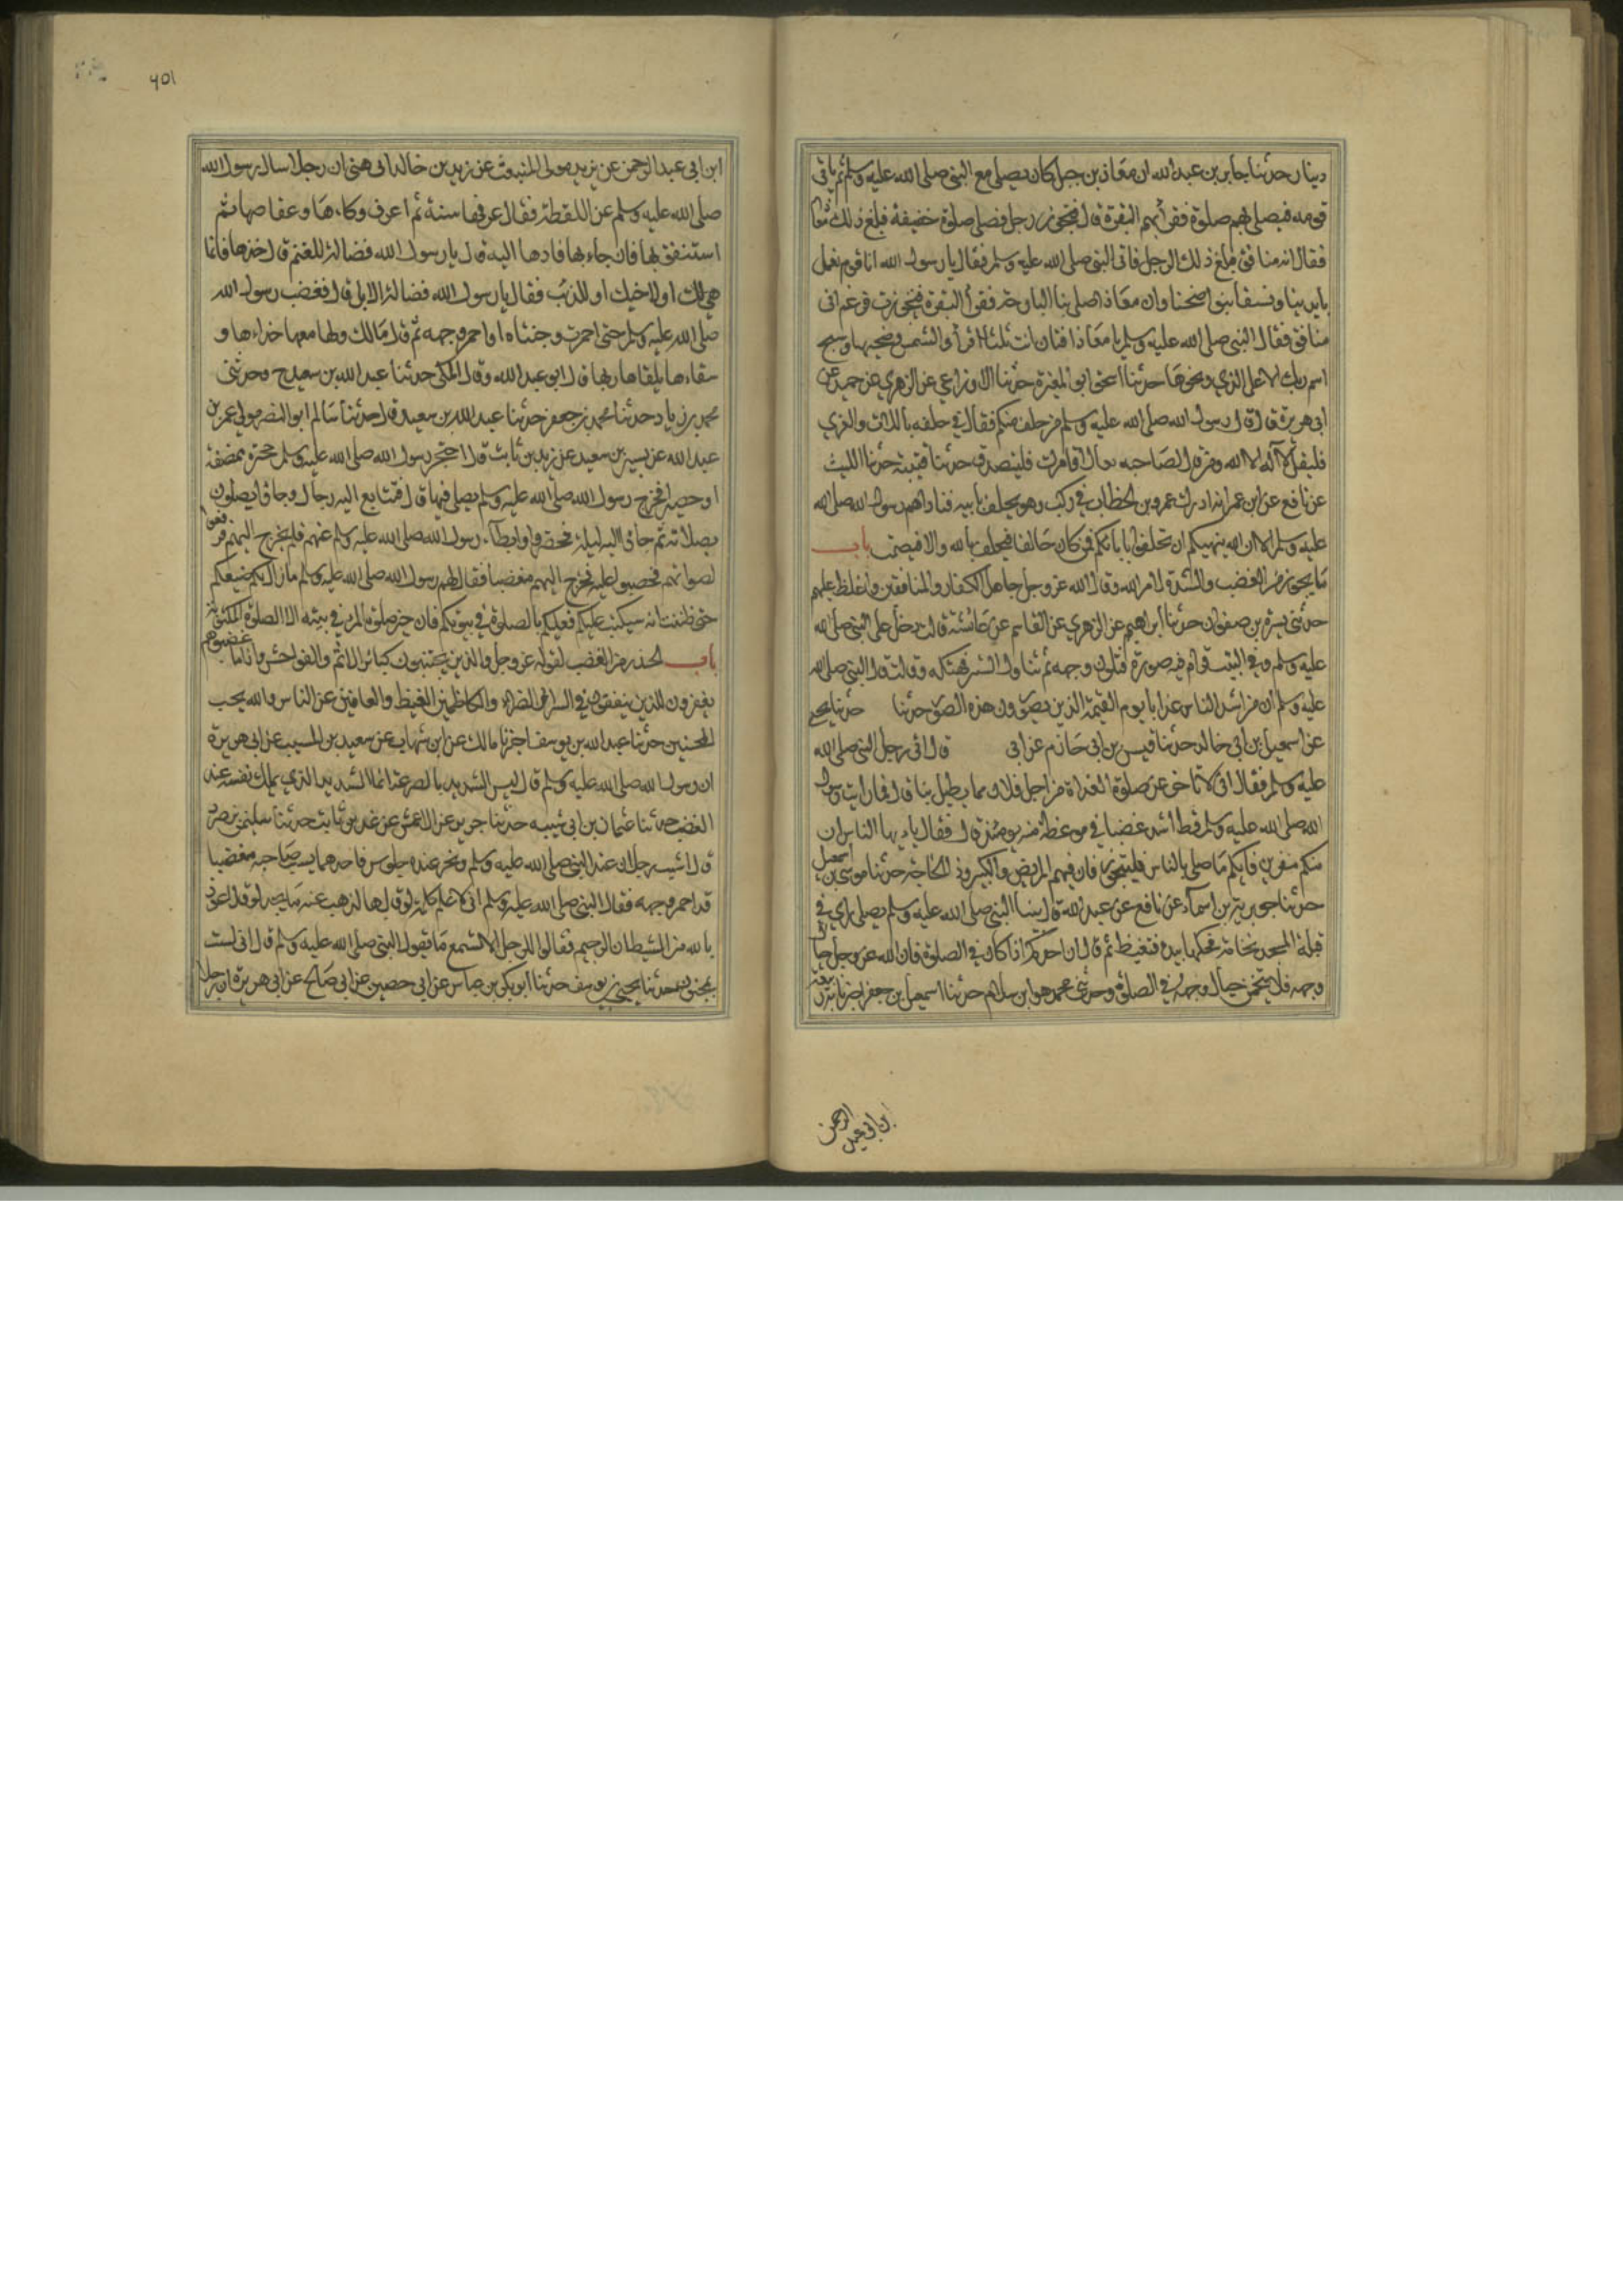 دينار حدثنا جابر بن عبد الله ان معاذ بن جبل كان يصلي مع النبي صلى الله عليه وسلم ثم ياتي
قومه فيصلي بهم صلوة فقرأ بهم البقرة قال فتجوز رجل فصلى صلوة خفيفة فبلغ ذلك معاذا
فقال انه منافق فبلغ ذلك الرجل فاتى النبي صلى الله عليه وسلم فقال يا رسول الله انا قوم نعمل
بايدينا ونسقي بنواضحنا وان معاذا صلى بنا البارحة فقرأ البقرة فتجوزت فزعم اني
منافق فقال النبي صلى الله عليه وسلم يا معاذ افتان انت ثلثا اقرأ والشمس وضحيها وسبح
اسم ربك الاعلى الذي ونحوها حدثنا اسحق ابو المغيرة حدثنا الاوزاعي عن الزهري عن حميد عن
ابي هريرة قال قال رسول الله صلى الله عليه وسلم من حلف منكم فقال في حلفه باللات والعزي
فليقل لا اله الا الله ومن قال لصاحبه تعال اقامرك فليتصدق حدثنا قتيبة حدثنا الليث
عن نافع عن ابن عمر انه ادرك عمرو بن الخطاب في ركب وهو يحلف بابيه فناداهم رسول الله صلى الله
عليه وسلم الا ان الله ينهيكم ان تحلفوا بابائكم فمن كان حالفا فيحلف بالله والا فيصمت باب
ما يجوز من الغضب والشدة لامر الله وقال الله عز وجل جاهد الكفار والمنافقين واغلظ عليهم
حدثني يسرة بن صفوان حدثنا ابراهيم عن الزهري عن القاسم عن عائشة قالت دخل علي النبي صلى الله
عليه وسلم وفي البيت قرام فيه صورة فتلون وجهه ثم تناول الستر فهتكه وقالت قال النبي صلى الله
عليه وسلم ان من اشد الناس عذابا يوم القيمة الذين يصورون هذه الصور حدثنا حدثنا يحيى
عن اسمعيل بن ابي خالد حدثنا قيس بن ابي حازم عن ابي قال اتى رجل النبي صلى الله
عليه وسلم فقال اني لاتاخر عن صلوة الغداة من اجل فلان مما يطيل بنا قال فما رايت رسول
الله صلى الله عليه وسلم قط اشد غضبا في موعظة منه يومئذ قال فقال يا ايها الناس ان
منكم منفرين فايكم ما صلى بالناس فليتجوز فان فيهم المريض والكبير وذا الحاجة حدثنا موسى بن اسمعيل
حدثنا جويرية بن اسماء عن نافع عن عبد الله قال بينا النبي صلى الله عليه وسلم يصلي راى في
قبلة المسجد نخامة فحكها بيده فتغيظ ثم قال ان احدكم اذا كان في الصلوة فان الله عز وجل حيال
وجهه فلا يتنخمن حيال وجهه في الصلوة وحدثني محمد هو ابن سلام حدثنا اسمعيل بن جعفر اخبرنا ربيعة بن
ابن ابي عبد الرحمن
401
ابن ابي عبد الرحمن عن يزيد مولى المنبعث عن زيد بن خالد الجهني ان رجلا سال رسول الله
صلى الله عليه وسلم عن اللقطة فقال عرفها سنة ثم اعرف وكاءها وعفاصها ثم
استنفق بها فان جاء بها فادها اليه قال يا رسول الله فضالة الغنم قال خذها فانما
هي لك او لاخيك او للذئب فقال يا رسول الله فضالة الابل قال فغضب رسول الله
صلى الله عليه وسلم حتى احمرت وجنتاه او احمر وجهه ثم قال مالك ولها معها حذاءها و
سقاءها يلقاها ربها قال ابو عبد الله وقال المكي حدثنا عبد الله بن سعيد ح وحدثني
محمد بن زياد حدثنا محمد بن جعفر حدثنا عبد الله بن سعيد قال حدثنا سالم ابو النضر مولى عمر بن
عبد الله عن بسر بن سعيد عن زيد بن ثابت قال احتجر رسول الله صلى الله عليه وسلم حجرة بخصفة
او حصير فخرج رسول الله صلى الله عليه وسلم يصلي فيها قال فتتابع اليه رجال وجاؤا يصلون
بصلاته ثم جاؤا اليه ليلة فحضروا وابطاء رسول الله صلى الله عليه وسلم عنهم فلم يخرج اليهم فرفعوا
اصواتهم فحصبوا عليه فخرج اليهم مغضبا فقال لهم رسول الله صلى الله عليه وسلم ما زال بكم ضيعكم
حتى ظننت انه سيكتب عليكم فعليكم بالصلوة في بيوتكم فان خير صلوة المرء في بيته الا الصلوة المكتوبة
باب الحذر من الغضب لقوله عز وجل والذين يجتنبون كبائر الاثم والفواحش واذا ما غضبوا هم
يغفرون للذين ينفقون في السراء والضراء والكاظمين الغيظ والعافين عن الناس والله يحب
المحسنين حدثنا عبد الله بن يوسف اخبرنا مالك عن ابن شهاب عن سعيد بن المسيب عن ابي هريرة
ان رسول الله صلى الله عليه وسلم قال ليس الشديد بالصرعة انما الشديد الذي يملك نفسه عند
الغضب حدثنا عثمان بن ابي شيبة حدثنا جرير عن الاعمش عن عدي بن ثابت حدثنا سليمن بن صرد
قال استب رجلان عند النبي صلى الله عليه وسلم ونحن عنده جلوس فاحدهما يسب صاحبه مغضبا
قد احمر وجهه فقال النبي صلى الله عليه وسلم اني لاعلم كلمة لو قالها لذهب عنه ما يجد لو قال اعوذ
بالله من الشيطان الرجيم فقالوا للرجل الا تسمع ما يقول النبي صلى الله عليه وسلم قال اني لست
بمجنون حدثنا يحيى بن يوسف حدثنا ابو بكر بن عياش عن ابي حصين عن ابي صالح عن ابي هريرة ان رجلا